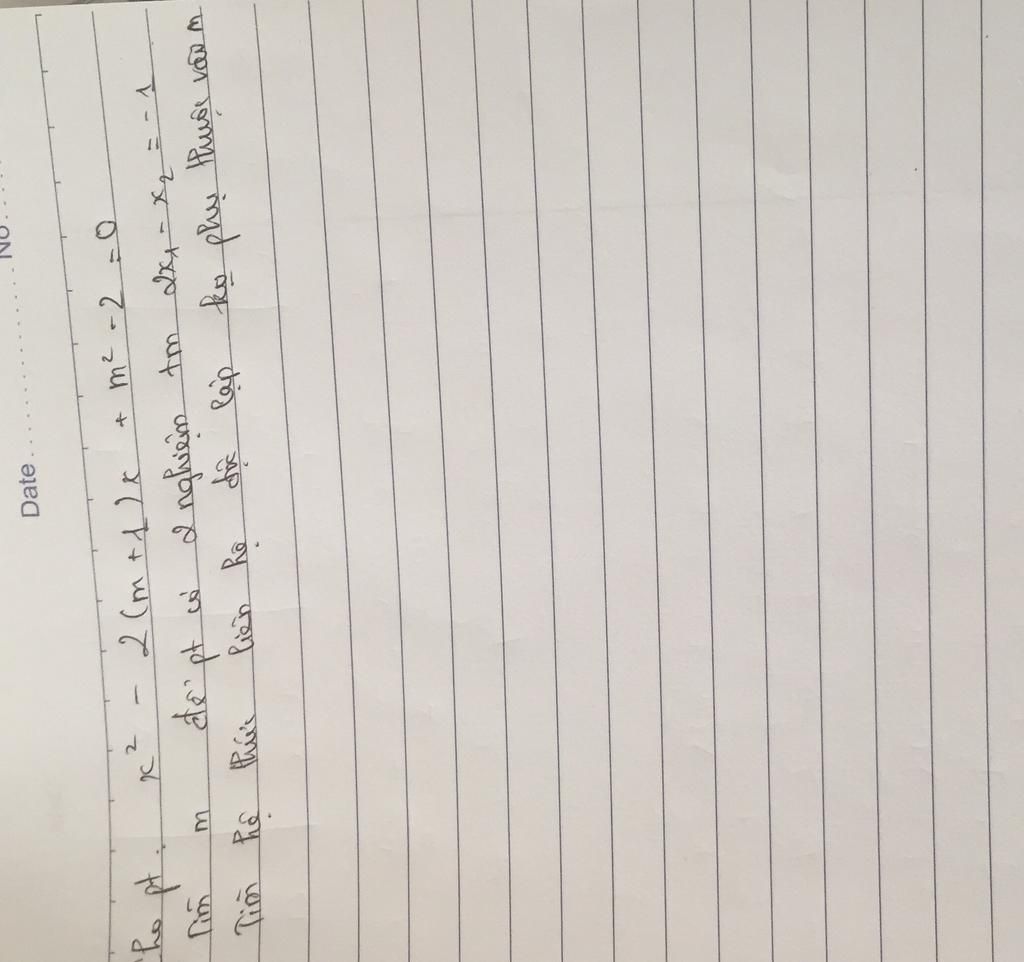 Date.................... No.....
Cho pt : x² - 2(m+1)x + m² - 2 = 0
Tìm m để pt có 2 nghiệm tm 2x₁ - x₂ = -1
Tìm hệ thức liên hệ độc lập ko phụ thuộc vào m